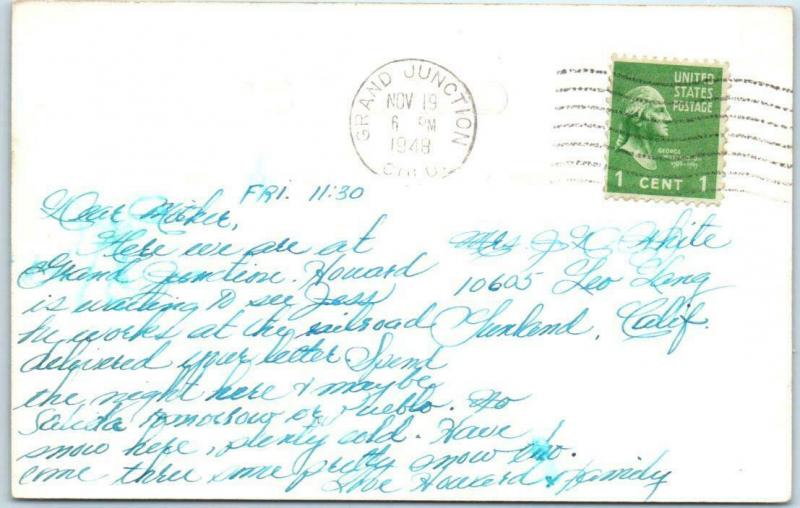 GRAND JUNCTION
NOV 19
6 PM
1948
COLO.
UNITED
STATES
POSTAGE
GEORGE
WASHINGTON
1789-1797
1 CENT 1
FRI. 11:30
Dear Mother,
Here we are at
Grand Junction. Howard
is waiting to see Jess
he works at the railroad
delivered your letter Spend
the night here & maybe
Salida tomorrow or Pueblo. No
snow here, plenty cold. Have
come thru some pretty snow tho.
Love Howard & Family
Mrs J. W. White
10605 Leo Lang
Sunland, Calif.